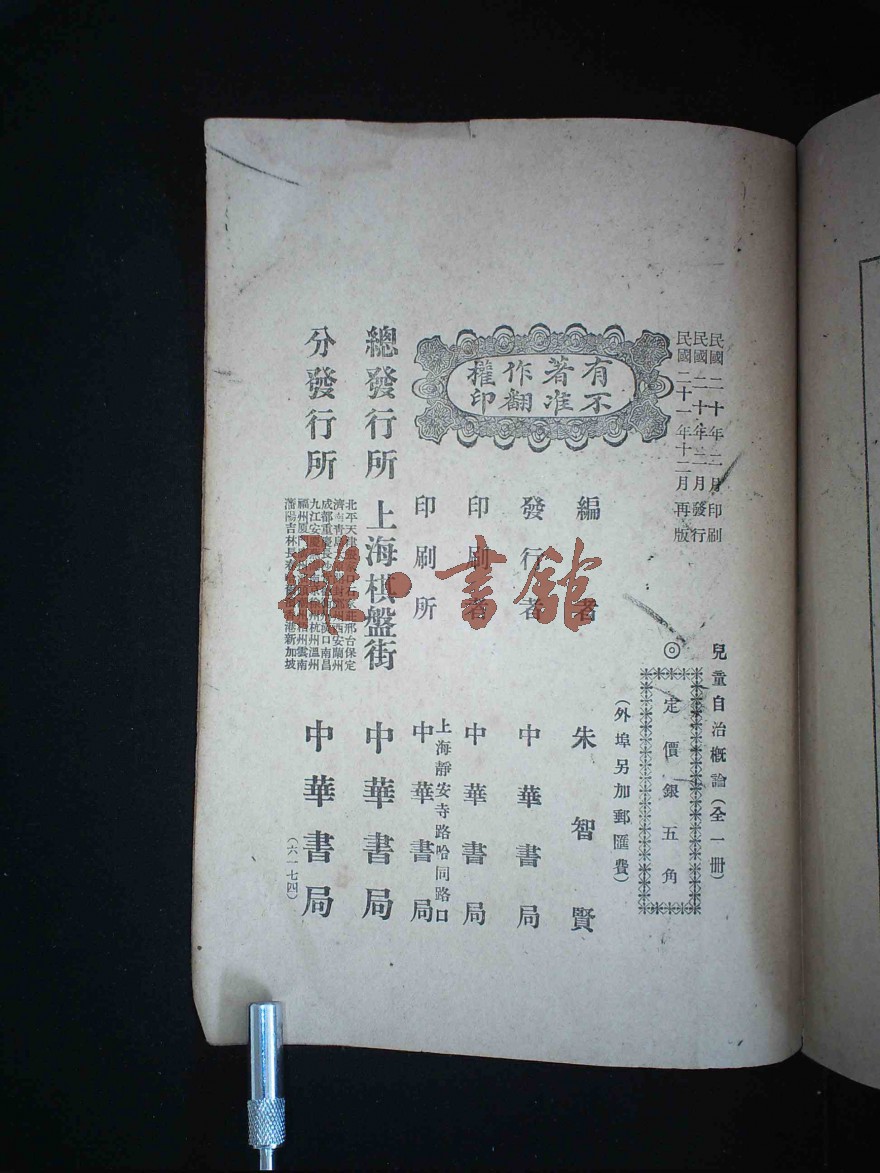 民國二十年二月印刷
民國二十年二月發行
民國二十一年十二月再版
兒童自治概論(全一册)
◎定價銀五角
(外埠另加郵匯費)
有著作權
不准翻印
編者 朱智賢
發行者 中華書局
印刷者 中華書局
上海靜安寺路哈同路口
印刷所 中華書局
總發行所 上海棋盤街 中華書局
分發行所 中華書局
北平天津 邢台保定
濟南青島 西安蘭州
成都重慶長沙 漢口南昌
九江安慶 杭州溫州
福州廈 州雲南
瀋陽吉林長春 港新加坡
(六一七四)
雜·書館